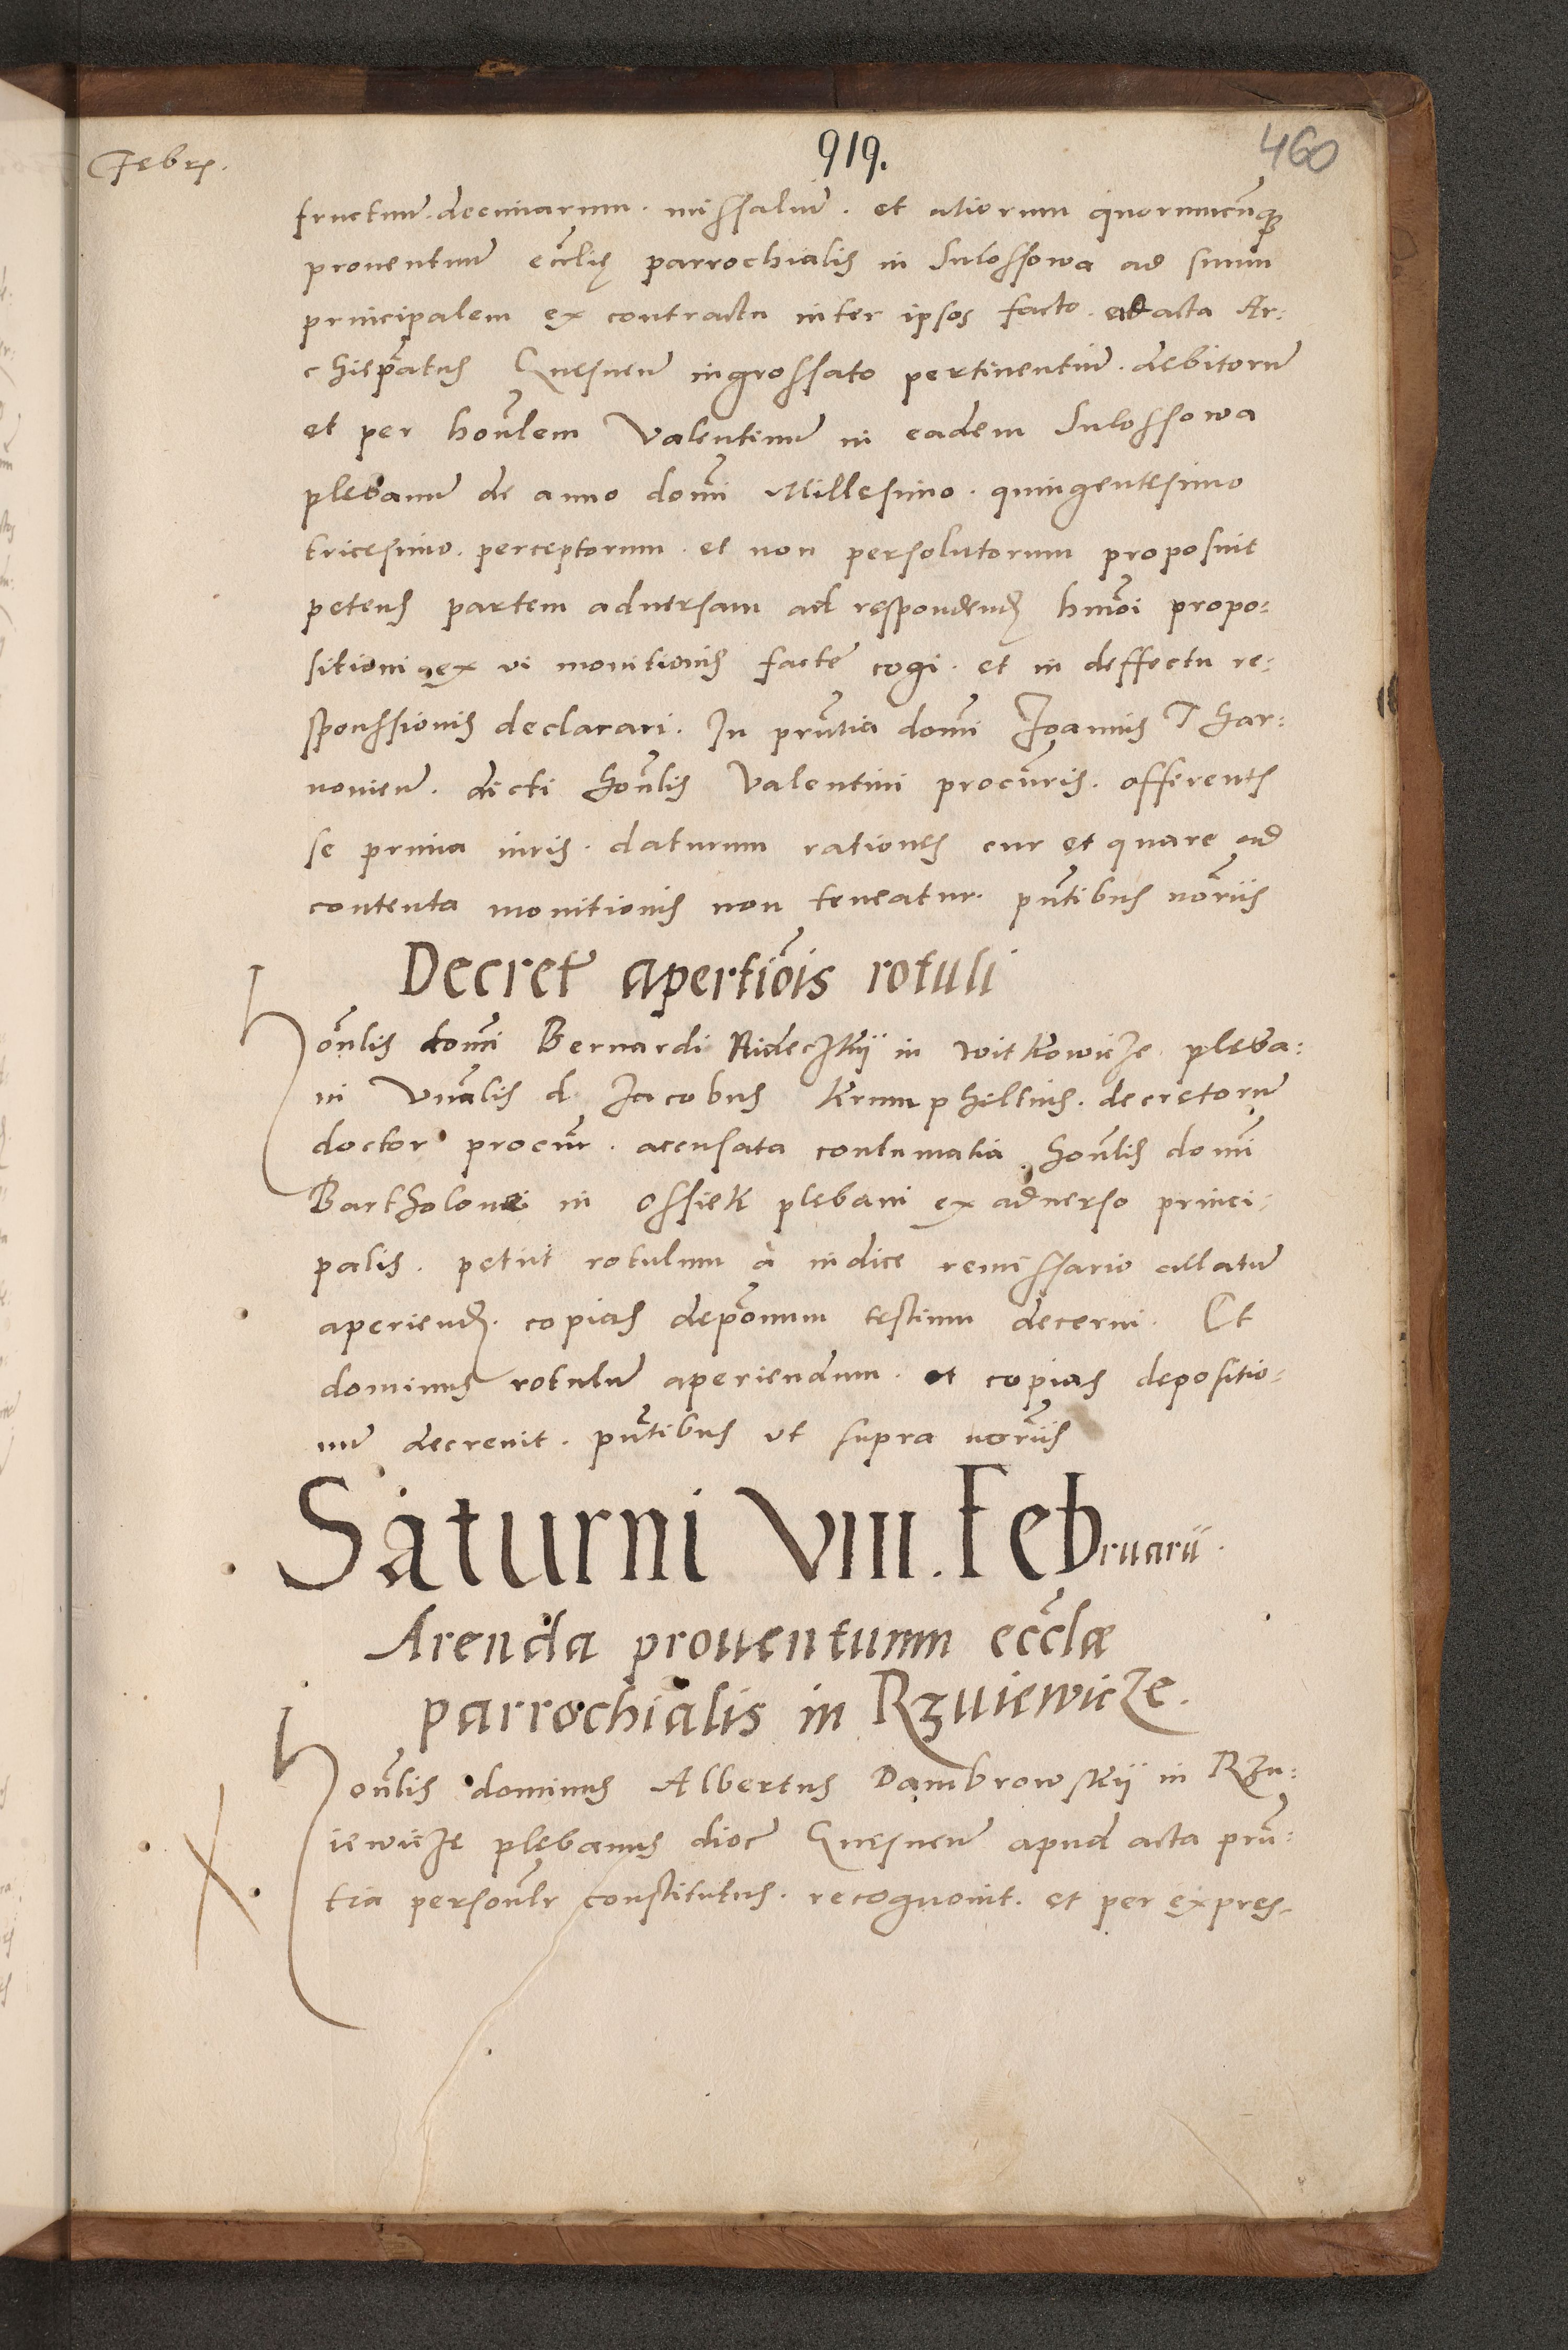 Febr.
919.
460
fructuum. decimarum. missaliũ. et aliorum quorumcũq
prouentuũ eccliȩ parrochialis in Sulossowa ad suum
principalem ex contractu inter ipsos facto. ad acta Ar:
chiepatus Gnesneñ ingrossato pertinentiũ. debitorũ
et per honlem Valentinũ in eadem Sulossowa
plebanũ de anno domi Millesimo. quingentesimo
tricesimo. perceptorum. et non persolutorum proposuit
petens partem aduersam ad respondend hmoi propo:
sitioni ex vi monitionis facte cogi. et in deffectu re:
sponssionis declarari. In pruntia domi Joannis Thar:
nouieñ. dicti honlis Valentini procuris. offerents
se prima iuris. daturum rationes cur et quare ad
contenta monitionis non teneatur. pntibus noriis
Decretũ apertiois rotuli
Honlis domi Bernardi Rideczkij in Witkowicze pleba:
ni Vnalis d. Jacobus Krumphelius. decretorũ
doctor procur. acensata contumatia. honlis domi
Bartholomei in Ossiek plebani ex aduerso princi:
palis. petiit rotulum à iudice remissario allatũ
aperiend. copias depõnum testium decerni. Et
dominus rotulũ aperiendum. et copias depositio:
nũ decreuit. pntibus vt supra noriis
Saturni VIII. Februarii.
Arenda prouentuum ecclæ
parrochialis in Rzuiewicze.
Honlis dominus Albertus Dambrowskij in Rzu:
iewicze plebanus dioc Gnesneñ apud acta prũ:
tia personlr constitutus. recognouit. et per expres-